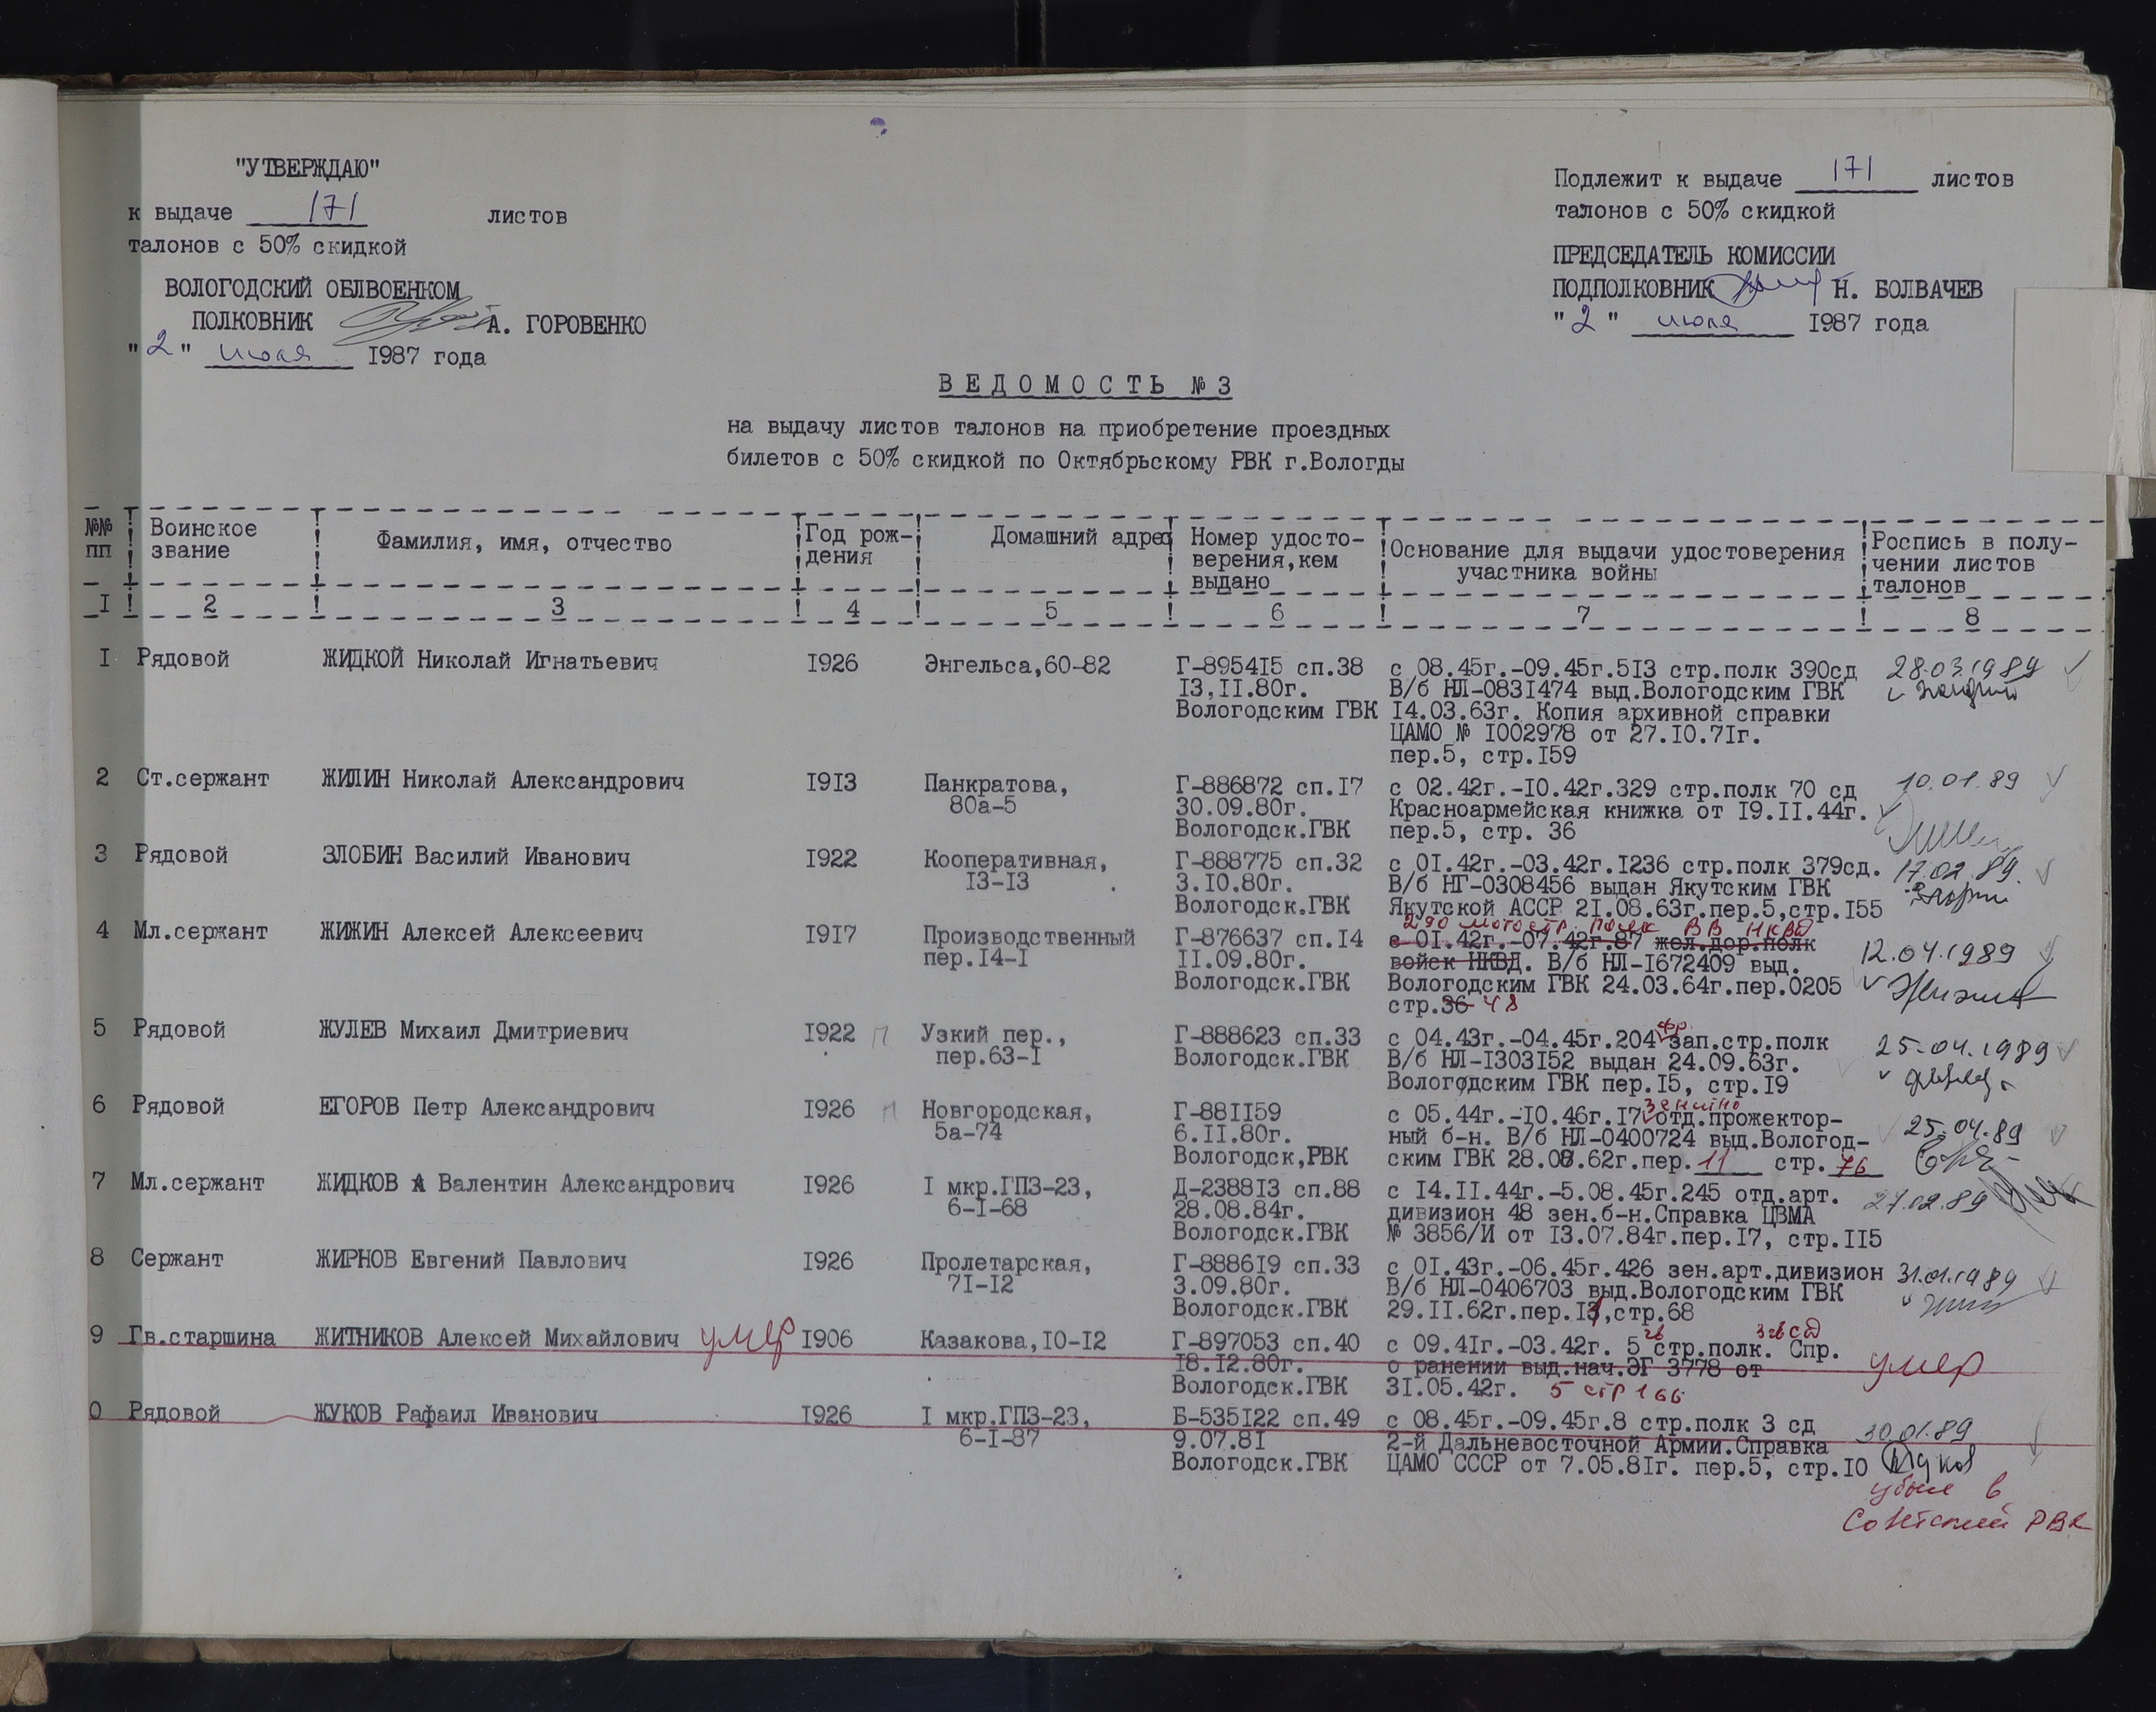 "УТВЕРЖДАЮ"
к выдаче 171 листов
талонов с 50% скидкой
ВОЛОГОДСКИЙ ОБЛВОЕНКОМ
ПОЛКОВНИК А. ГОРОВЕНКО
"2" июля 1987 года
Подлежит к выдаче 171 листов
талонов с 50% скидкой
ПРЕДСЕДАТЕЛЬ КОМИССИИ
ПОДПОЛКОВНИК Н. БОЛВАЧЕВ
"2" июля 1987 года
ВЕДОМОСТЬ №3
на выдачу листов талонов на приобретение проездных
билетов с 50% скидкой по Октябрьскому РВК г.Вологды
№№ пп
Воинское звание
Фамилия, имя, отчество
Год рож-
дения
Домашний адрес
Номер удосто-
верения,кем
выдано
Основание для выдачи удостоверения
участника войны
Роспись в полу-
чении листов
талонов
I 2 3 4 5 6 7 8
I Рядовой ЖИДКОЙ Николай Игнатьевич I926 Энгельса,60-82 Г-8954I5 сп.38 с 08.45г.-09.45г.5I3 стр.полк 390сд 28.03.1989
I3,II.80г. В/б НЛ-083I474 выд.Вологодским ГВК
Вологодским ГВК I4.03.63г. Копия архивной справки
ЦАМО № I002978 от 27.I0.7Iг.
пер.5, стр.I59
2 Ст.сержант ЖИЛИН Николай Александрович I9I3 Панкратова, Г-886872 сп.I7 с 02.42г.-I0.42г.329 стр.полк 70 сд 10.01.89
80а-5 30.09.80г. Красноармейская книжка от I9.II.44г.
Вологодск.ГВК пер.5, стр. 36
3 Рядовой ЗЛОБИН Василий Иванович I922 Кооперативная, Г-888775 сп.32 с 0I.42г.-03.42г.I236 стр.полк 379сд. 17.02.89.
I3-I3 3.I0.80г. В/б НГ-0308456 выдан Якутским ГВК
Вологодск.ГВК Якутской АССР 2I.08.63г.пер.5,стр.I55
290 мотостр. полк ВВ НКВД
4 Мл.сержант ЖИЖИН Алексей Алексеевич I9I7 Производственный Г-876637 сп.I4 с 0I.42г.-07.42г.87 жел.дор.полк 12.04.1989
пер.I4-I II.09.80г. войск НКВД. В/б НЛ-I672409 выд.
Вологодск.ГВК Вологодским ГВК 24.03.64г.пер.0205
стр.36 48
5 Рядовой ЖУЛЕВ Михаил Дмитриевич I922 П Узкий пер., Г-888623 сп.33 с 04.43г.-04.45г.204 фр. зап.стр.полк 25.04.1989
пер.63-I Вологодск.ГВК В/б НЛ-I303I52 выдан 24.09.63г.
Вологодским ГВК пер.I5, стр.I9
6 Рядовой ЕГОРОВ Петр Александрович I926 П Новгородская, Г-88II59 с 05.44г.-I0.46г.I7 зенитно отд.прожектор- 25.04.89
5а-74 6.II.80г. ный б-н. В/б НЛ-0400724 выд.Вологод-
Вологодск,РВК ским ГВК 28.08.62г.пер. 11 стр. 76
7 Мл.сержант ЖИДКОВ А Валентин Александрович I926 I мкр.ГПЗ-23, Д-2388I3 сп.88 с I4.II.44г.-5.08.45г.245 отд.арт. 27.02.89
6-I-68 28.08.84г. дивизион 48 зен.б-н.Справка ЦВМА
Вологодск.ГВК № 3856/И от I3.07.84г.пер.I7, стр.II5
8 Сержант ЖИРНОВ Евгений Павлович I926 Пролетарская, Г-8886I9 сп.33 с 0I.43г.-06.45г.426 зен.арт.дивизион 31.01.1989
7I-I2 3.09.80г. В/б НЛ-0406703 выд.Вологодским ГВК
Вологодск.ГВК 29.II.62г.пер.I3,стр.68
9 Гв.старшина ЖИТНИКОВ Алексей Михайлович умер I906 Казакова,I0-I2 Г-897053 сп.40 с 09.4Iг.-03.42г. 5 гв стр.полк. 3 гв сд Спр. умер
I8.I2.80г. о ранении выд.нач.ЭГ 3778 от
Вологодск.ГВК 3I.05.42г. 5 стр 166
0 Рядовой ЖУКОВ Рафаил Иванович I926 I мкр.ГПЗ-23, Б-535I22 сп.49 с 08.45г.-09.45г.8 стр.полк 3 сд 30.01.89
6-I-87 9.07.8I 2-й Дальневосточной Армии.Справка
Вологодск.ГВК ЦАМО СССР от 7.05.8Iг. пер.5, стр.I0 Жуков
убыл в
Советский РВК